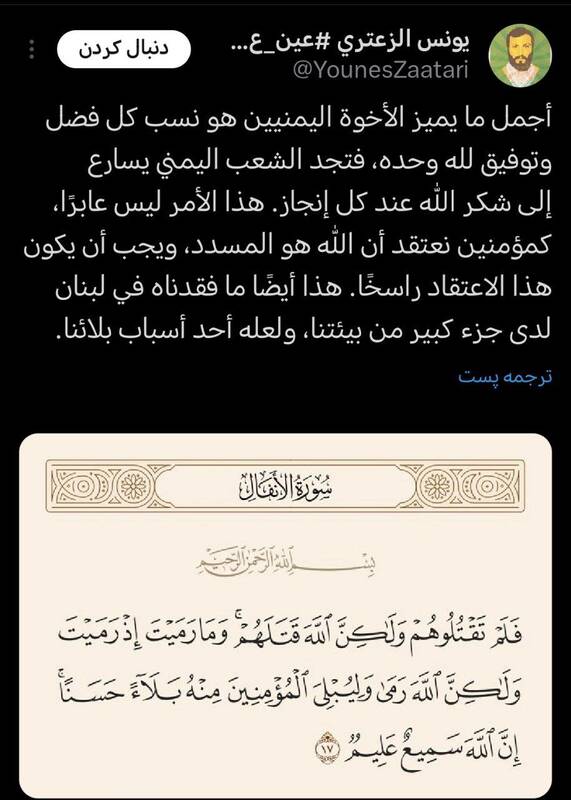 يونس الزعتري #عين_ع...
دنبال کردن
@YounesZaatari
أجمل ما يميز الأخوة اليمنيين هو نسب كل فضل
وتوفيق لله وحده، فتجد الشعب اليمني يسارع
إلى شكر الله عند كل إنجاز. هذا الأمر ليس عابرًا،
كمؤمنين نعتقد أن الله هو المسدد، ويجب أن يكون
هذا الاعتقاد راسخًا. هذا أيضًا ما فقدناه في لبنان
لدى جزء كبير من بيئتنا، ولعله أحد أسباب بلائنا.
ترجمه پست
سُورَةُ الأَنفَالِ
بِسْمِ اللَّهِ الرَّحْمَٰنِ الرَّحِيمِ
فَلَمْ تَقْتُلُوهُمْ وَلَٰكِنَّ ٱللَّهَ قَتَلَهُمْ ۚ وَمَا رَمَيْتَ إِذْ رَمَيْتَ
وَلَٰكِنَّ ٱللَّهَ رَمَىٰ وَلِيُبْلِىَ ٱلْمُؤْمِنِينَ مِنْهُ بَلَآءً حَسَنًا ۚ
إِنَّ ٱللَّهَ سَمِيعٌ عَلِيمٌ ١٧